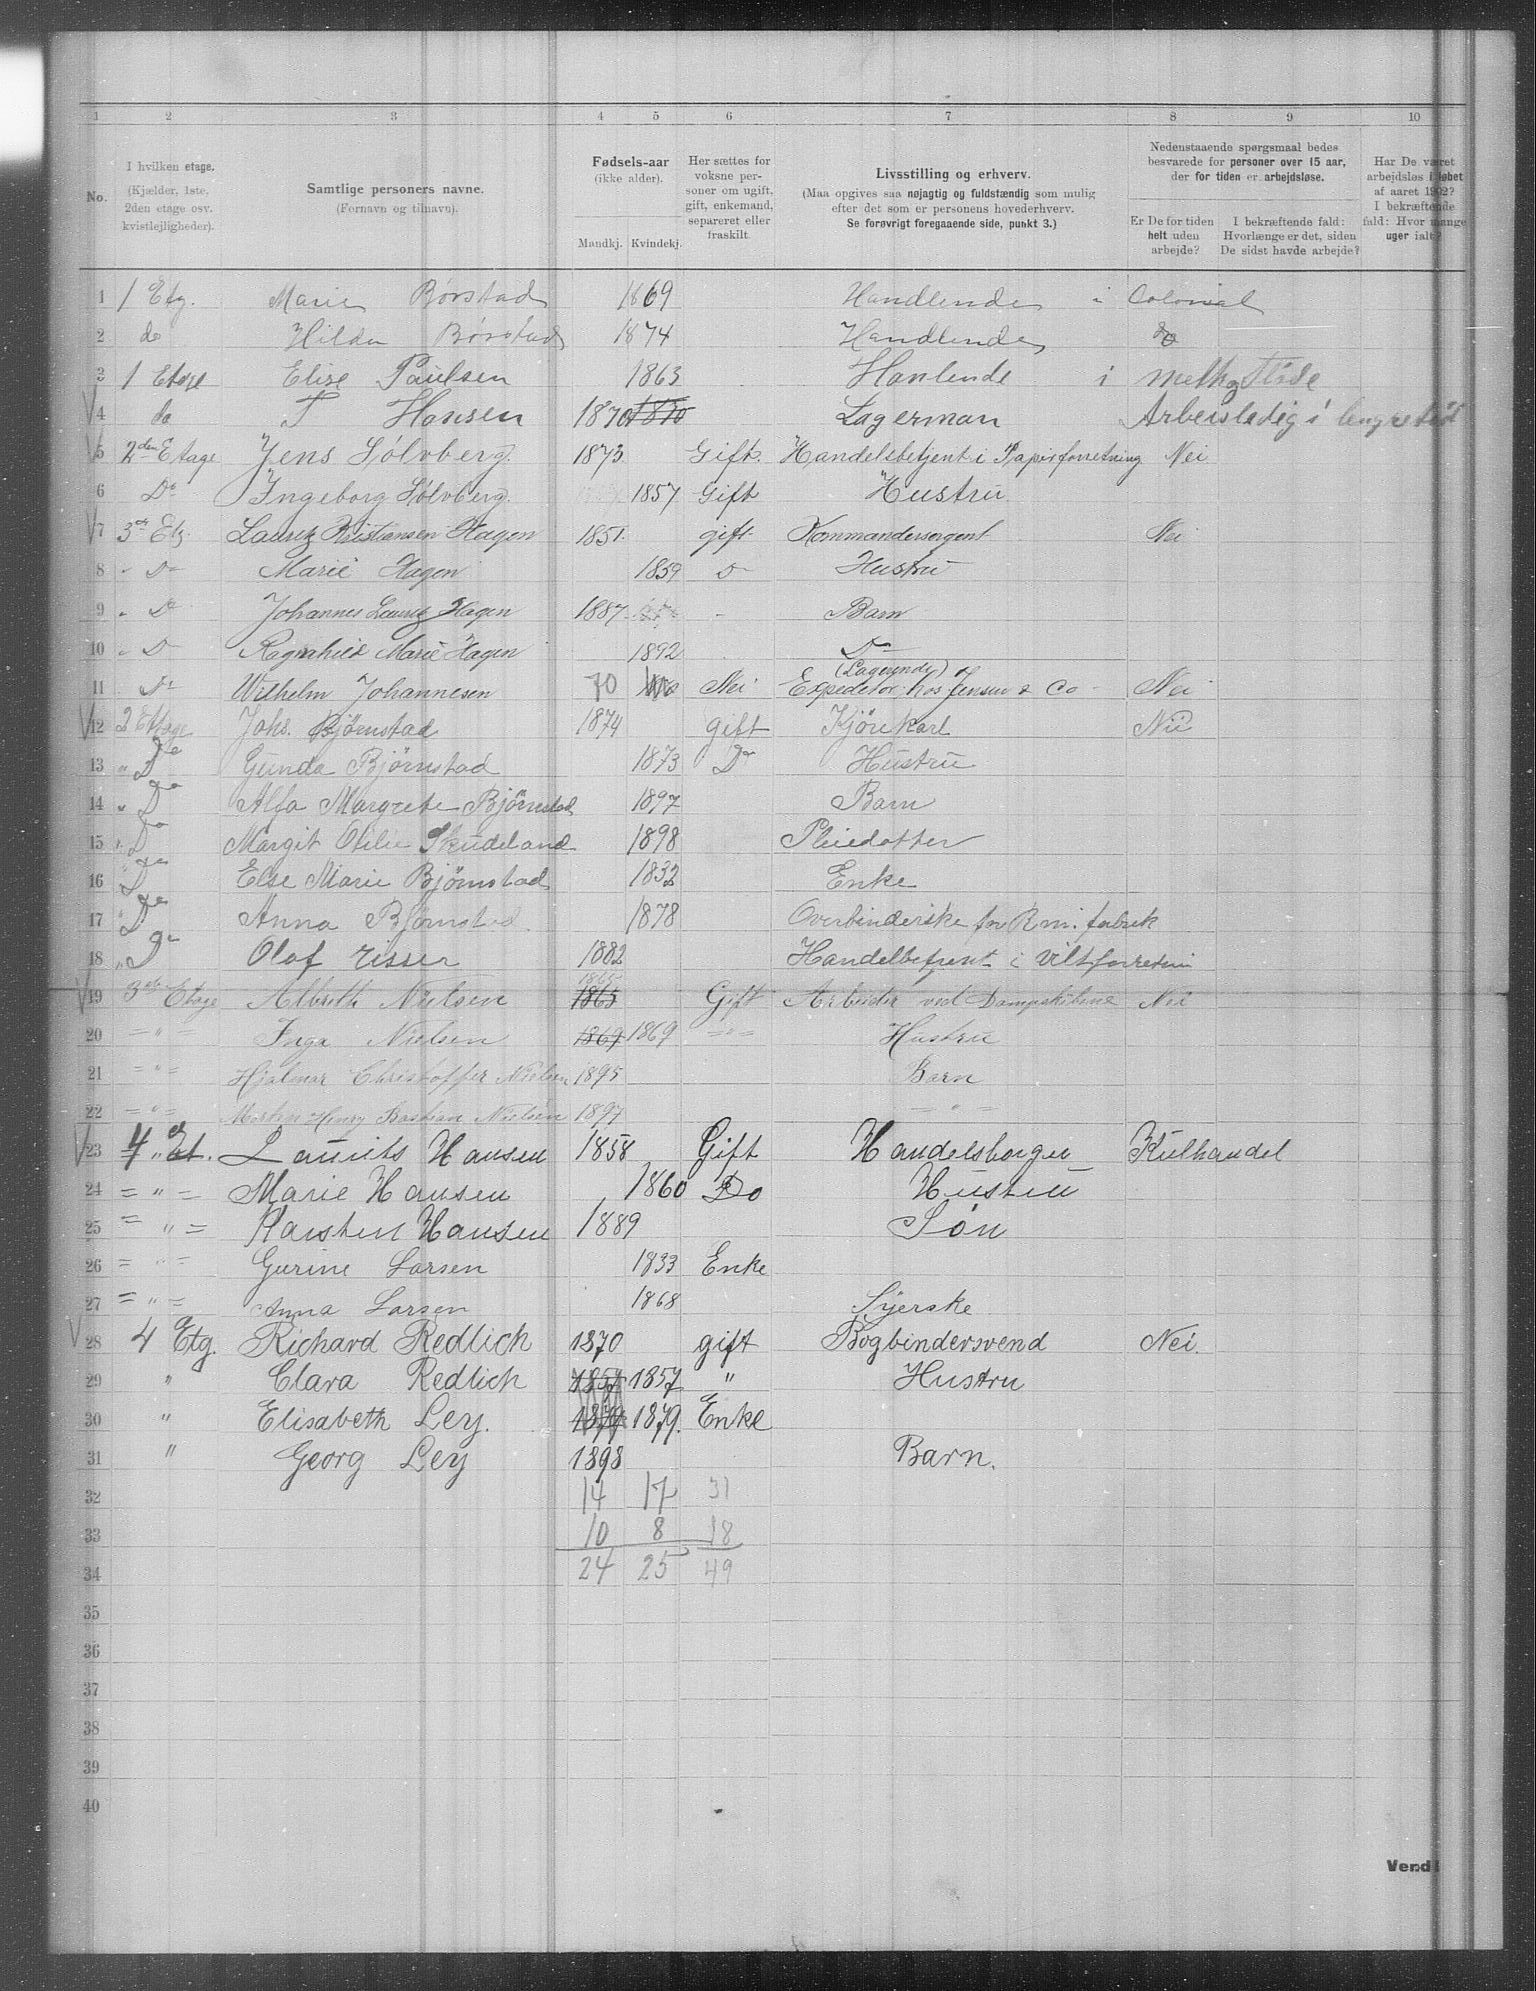 1 2 3 4 5 6 7 8 9 10
No.
I hvilken etage.
(Kjælder, 1ste.
2den etage osv.
kvistlejligheder).
Samtlige personers navne.
(Fornavn og tilnavn).
Fødsels-aar
(ikke alder).
Mandkj. Kvindekj.
Her sættes for
voksne per-
soner om ugift,
gift, enkemand,
separeret eller
fraskilt.
Livsstilling og erhverv.
(Maa opgives saa nøjagtig og fuldstændig som mulig
efter det som er personens hovederhverv.
Se forøvrigt foregaaende side, punkt 3.)
Nedenstaaende spørgsmaal bedes
besvarede for personer over 15 aar,
der for tiden er arbejdsløse.
Er De for tiden
helt uden
arbejde?
I bekræftende fald:
Hvorlænge er det, siden
De sidst havde arbejde?
Har De været
arbejdsløs i løbet
af aaret 1902?
I bekræftende
fald: Hvor mange
uger ialt?
1 1 Etg. Marie Børstad 1869 Handlende i Colonial
2 do Hilda Børstad 1874 Handlende do
3 1 Etage Elise Paulsen 1863 Hanlende i melk og
4 do T Hansen 1870 1870 Lagerman Arbeisledig i
5 2den Etage Jens Sølvberg. 1873 Gift. Handelsbetjent i Papirforretning Nei
6 Do Ingeborg Sølvberg. 1857 Gift Hustru
7 3die Etg. Lauritz Kristiansen Hagen 1851. gift. Kommandersergent Nei
8 " Do Marie Hagen 1859 Do Hustru
9 " Do Johannes Lauritz Hagen 1887 Barn
10 " Do Ragnhild Marie Hagen 1892 Do
11 Do Wilhelm Johannesen 70 Nei Expeditør, hos Jensen & Co Nei
12 2 Etage Johs. Bjørnstad 1874 gift Kjørekarl Nii
13 " Do Gunda Bjørnstad 1873 Do Hustru
14 " Do Alfa Margrete Bjørnstad 1897 Barn
15 " Do Margit Otilie Skudeland 1898 Pleiedatter
16 " Do Else Marie Bjørnstad 1832 Enke
17 " Do Anna Bjørnstad. 1878 Overbinderske for R.m. fabrik
18 " Do Olaf risser 1882 Handelbetjent i Viltforretnin
19 3die Etage Albreth Nielsen 1865 1865 Gift Arbeider ved Nei
20 = " = Inga Nielsen 1869 1869 = " = Hustru
21 = " = Hjalmar Christoffer Nielsen 1895 Barn
22 = " = Morten Henry Bastian Nielsen 1897 = " =
23 4 " Et. Laurits Hansen 1858 Gift Handelsborger Kulhandel
24 = " = Marie Hansen 1860 Do Hustru
25 = " = Karsten Hansen 1889 Søn
26 = " = Gurine Larsen 1833 Enke
27 = " = Anna Larsen 1868 Syerske
28 4 Etg. Richard Redlich 1870 gift Bogbindersvend Nei.
29 " Clara Redlich 1857 1857 " Hustru
30 " Elisabeth Ley. 1879 1879. Enke
31 " Georg Ley 1898 Barn.
32 14 17 31
33 10 8 18
34 24 25 49
35
36
37
38
39
40
Vend!